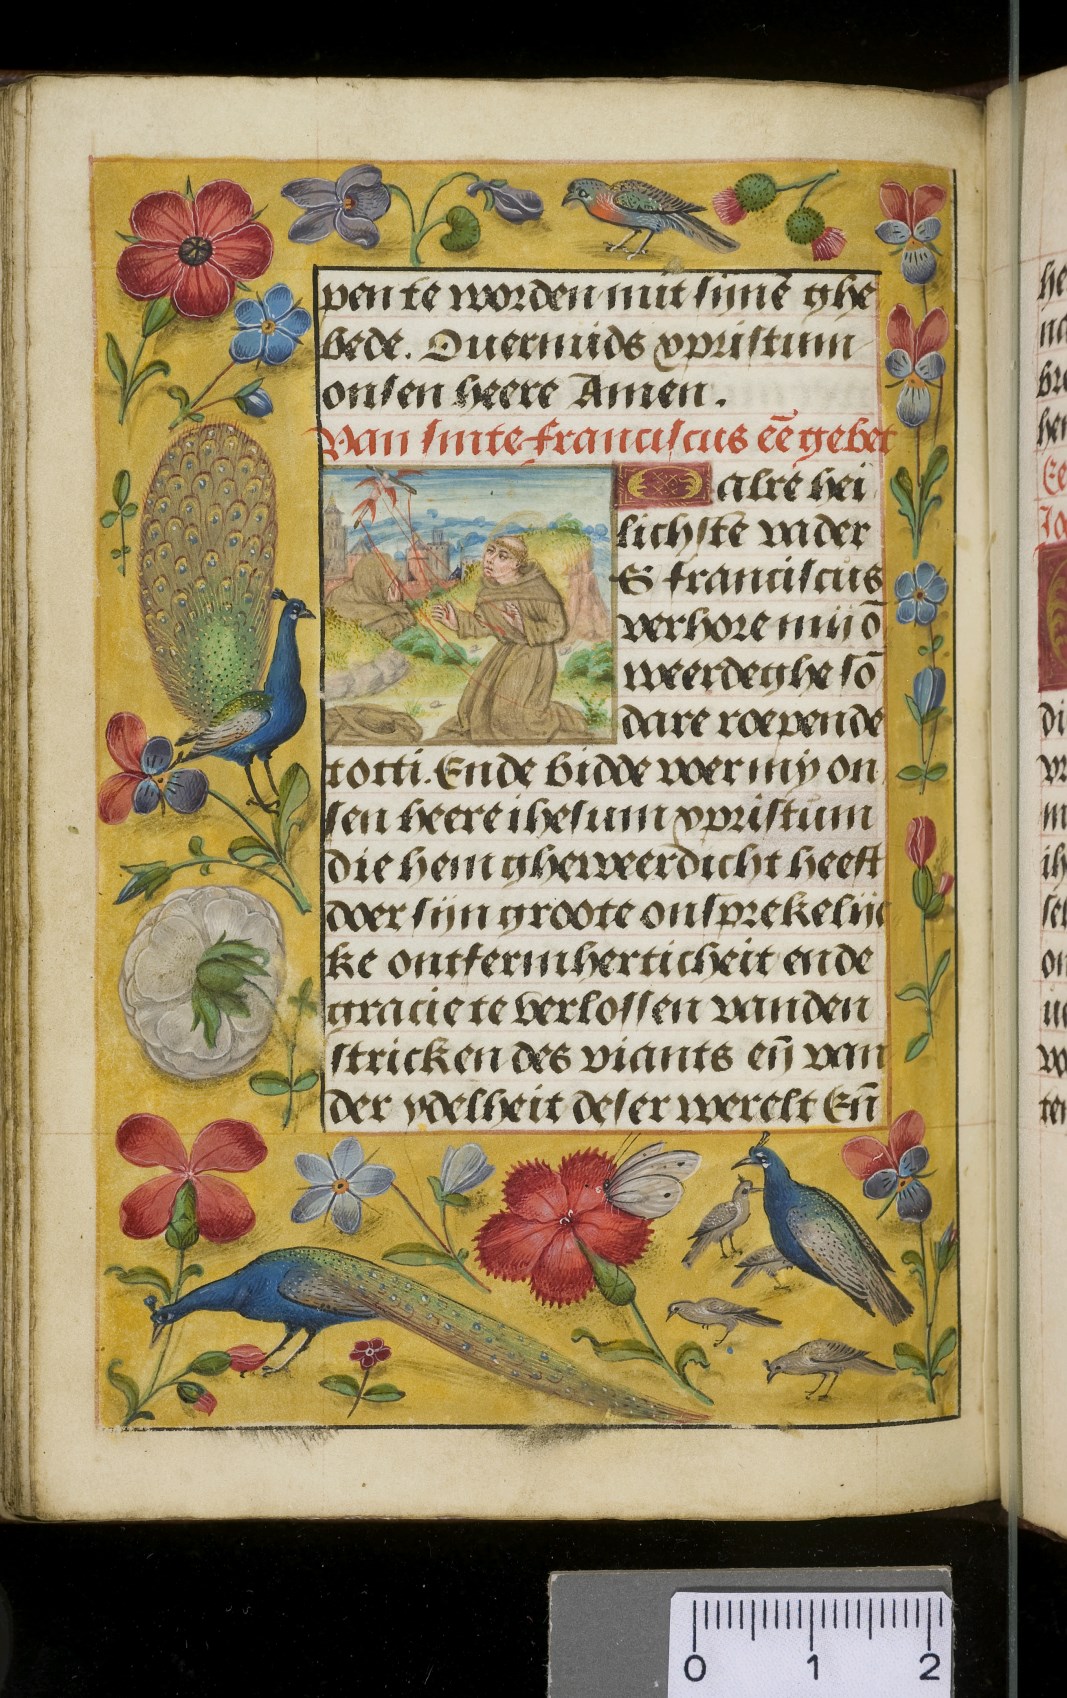 pen te worden mit sijnē ghe
bede. Ouermids xpristum
onsen heere Amen.
Van sinte franciscus eē gebet
O alre hei
lichste vader
S franciscus
verhore mij ō
weerdeghe sō
dare roepende
totti. Ende bidde voer mÿ on
sen heere ihesum xpristum
die hem gheweerdicht heeft
doer sijn groote onsprekelijc
ke ontfermherticheit ende
gracie te verlossen vanden
stricken des viants eñ van
der ydelheit deser werelt Eñ
0 1 2